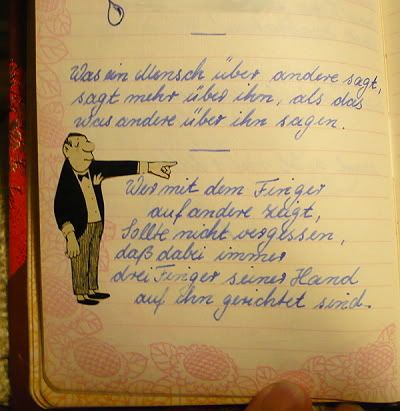 Was ein Mensch über andere sagt,
sagt mehr über ihn, als das
was andere über ihn sagen.
Wer mit dem Finger
auf andere zeigt,
Sollte nicht vergessen,
daß dabei immer
drei Finger seiner Hand
auf ihn gerichtet sind.